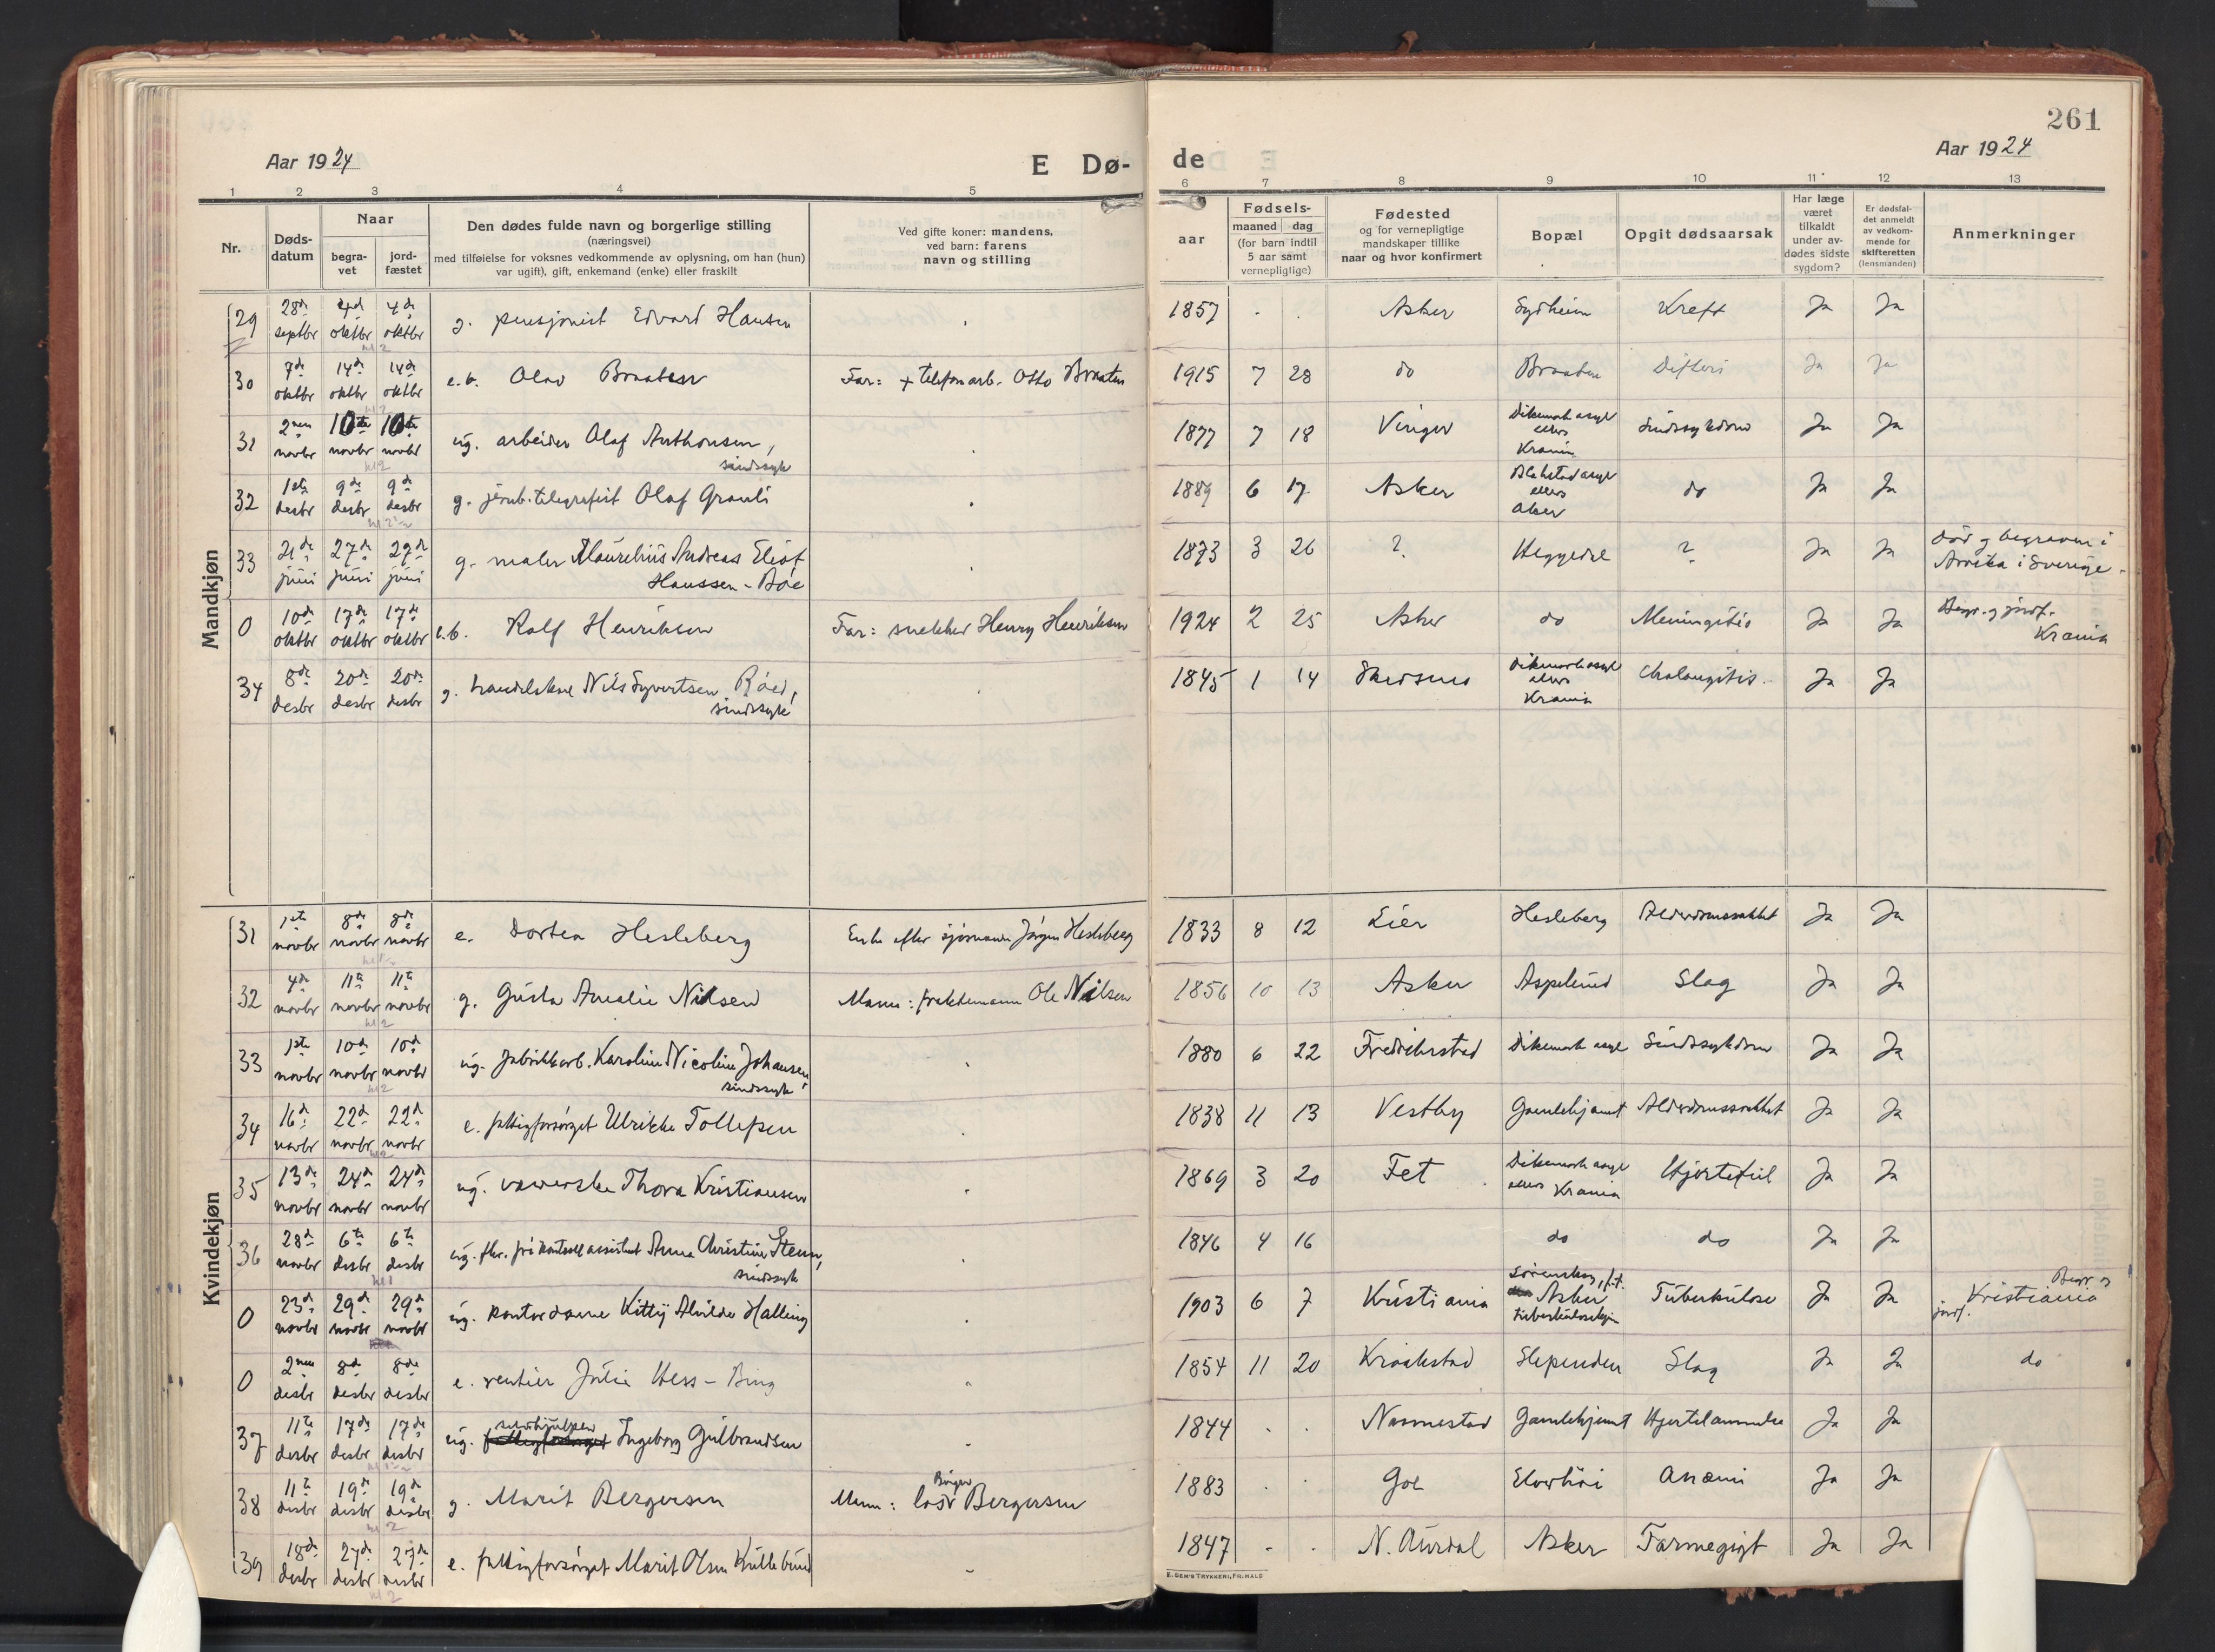 261
Aar 1924
E Dø-
de
Aar 1924
1 2 3 4 5 6 7 8 9 10 11 12 13
Nr.
Døds-
datum
Naar
begra-
vet
jord-
fæstet
Den dødes fulde navn og borgerlige stilling
(næringsvei)
med tilføielse for voksnes vedkommende av oplysning, om han (hun)
var ugift), gift, enkemand (enke) eller fraskilt
Ved gifte koner: mandens,
ved barn: farens
navn og stilling
aar
Fødsels-
maaned dag
(for barn indtil
5 aar samt
vernepligtige)
Fødested
og for vernepligtige
mandskaper tillike
naar og hvor konfirmert
Bopæl
Opgit dødsaarsak
Har læge
været
tilkaldt
under av-
dødes sidste
sygdom?
Er dødsfal-
det anmeldt
av vedkom-
mende for
skifteretten
(lensmanden)
Anmerkninger
Mandkjøn
29 28de septbr 4de oktbr 4de oktbr g. pensjonist Edvard Hansen 1857 Asker Sydheim Kreft Ja Ja
30 7de oktbr 14de oktbr 14de oktbr e.b. Olav Braaten Far: + telefonarb. Otto Braaten 1915 7 28 do Braaten Difteri Ja Ja
31 2nen novbr 10de novbr 10de novbr ug. arbeider Olaf Anthonsen, sindssyk 1877 7 18 Vinger Dikemark asyl ellers Krania Sindssykdom Ja Ja
32 1ste desbr 9de desbr 9de desbr g. jernb. telegrafist Olaf Granli 1889 6 17 Asker Blakstad asyl ellers Aker do Ja Ja
33 21de juni 27de juni 27de juni g. maler Maurelius Andreas Eliot Hanssen-Bøe 1873 3 26 ? Heggedal ? Ja Ja død og begraven i Arvika i Sverige.
0 10de oktbr 17de oktbr 17de oktbr e.b. Ralf Henriksen Far: snekker Henry Henriksen 1924 2 25 Asker do Meningitis Ja Ja Begr. og jordf. Krania
34 8de desbr 20de desbr 20de desbr g. handelskar Nils Syvertsen Røed, sindssyk 1845 1 14 Skedsmo Dikemark asyl ellers Krania Cholangitis. Ja Ja
Kvindekjøn
31 1ste novbr 8de novbr 8de novbr e. Dortea Hesleberg Enke efter sjömann Jørgen Hesleberg 1833 8 12 Lier Hesleberg Alderdomssvakhet Ja Ja
32 4de novbr 11te novbr 11te novbr g. Gusta Amalie Nilsen Mann: fraktemann Ole Nilsen 1856 10 13 Asker Aspelund Slag Ja Ja
33 1ste novbr 10de novbr 10de novbr ug. fabrikkarb. Karoline Nicoline Johansen, sindssyk 1880 6 22 Fredrikstad Dikemark asyl Sindssykdom Ja Ja
34 16de novbr 22de novbr 22de novbr e. fattigforsørget Ulrikke Tollefsen 1838 11 13 Vestby Gamlehjemt Alderdomssvakhet Ja Ja
35 13de novbr 24de novbr 24de novbr ug. væverske Thora Kristiansen 1869 3 20 Fet Dikemark asyl ellers Krania Hjertefeil Ja Ja
36 28de novbr 6te desbr 6te desbr ug. fhv. assistent Anna Christine Steen, sindssyk 1846 4 16 do do Ja Ja
0 23de novbr 29de novbr 29de novbr ug. kontordame Kitty Alvilde Halling 1903 6 7 Kristiania f.t. Asker tuberkulosehjem Tuberkulose Ja Ja Begr. og jordf. Kristiania
0 2nen desbr 8de desbr 8de desbr e. rentier Julie Hess-Bing 1854 11 20 Kraakstad Slependen Slag Ja Ja do
37 11te desbr 17de desbr 17de desbr ug. selvhjulpen Ingeborg Gulbrandsen 1844 Nannestad Gamlehjemt Hjertelammelse Ja Ja
38 11te desbr 19de desbr 19de desbr g. Marit Bergersen Mann: Birger Bergersen 1883 Gol Anæmi Ja Ja
39 18de desbr 27de desbr 27de desbr e. fattigforsørget Marit Olsen Kullebund 1847 N. Aurdal Asker Tarmegigt Ja Ja
E. SEM'S TRYKKERI, FR.HALD